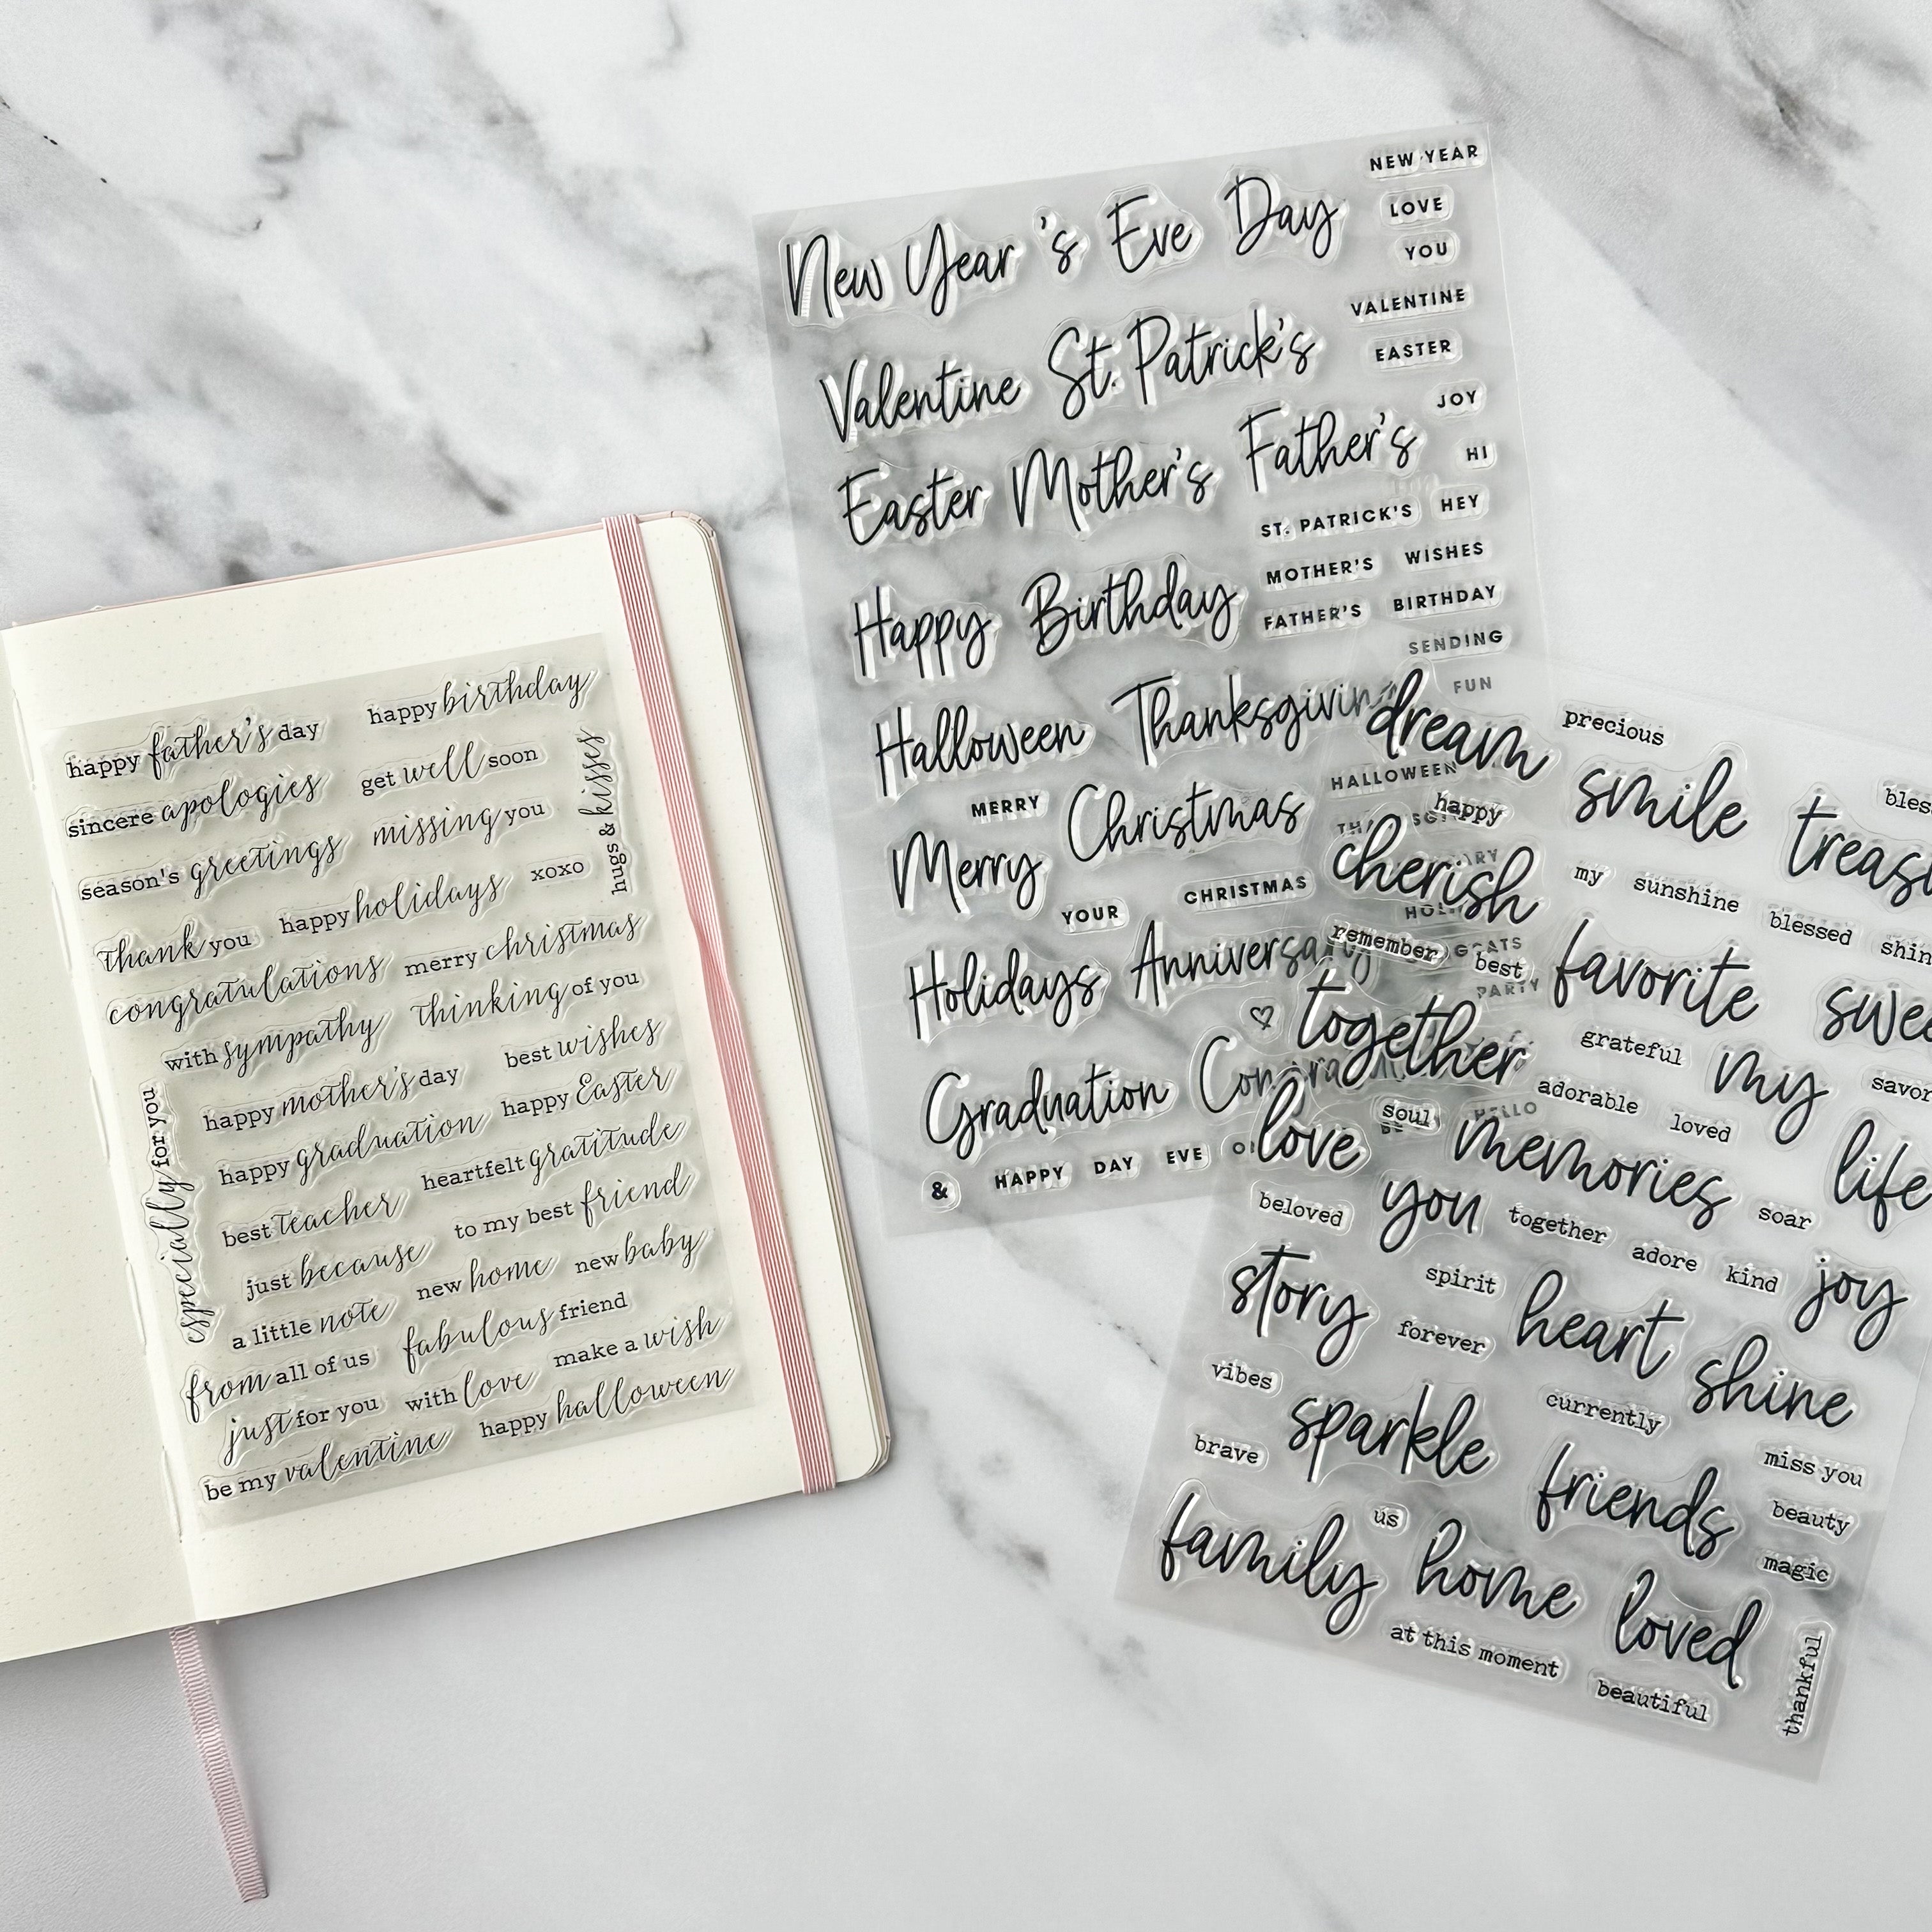 happy father's day
happy birthday
sincere apologies
get well soon
season's greetings
missing you
hugs & kisses
thank you
happy holidays
xoxo
congratulations
merry christmas
with sympathy
thinking of you
happy mother's day
best wishes
happy graduation
happy Easter
best teacher
heartfelt gratitude
especially for you
just because
to my best friend
a little note
new home
new baby
from all of us
fabulous friend
just for you
with love
make a wish
be my valentine
happy halloween
New Year 's Eve Day
NEW YEAR
LOVE
YOU
Valentine St. Patrick's
VALENTINE
EASTER
JOY
Easter Mother's Father's
HI
ST. PATRICK'S HEY
MOTHER'S WISHES
Happy Birthday
FATHER'S BIRTHDAY
SENDING
FUN
Halloween Thanksgiving
HALLOWEEN
MERRY
Merry Christmas
YOUR
CHRISTMAS
Holidays Anniversary
PARTY
Graduation
HELLO
& HAPPY DAY EVE
dream
precious
smile
happy
cherish
my sunshine
blessed
remember
best
favorite
together
grateful
my
adorable
loved
love
soul
memories
life
beloved
you
together
soar
adore
kind
joy
story
spirit
forever
heart
shine
vibes
sparkle
currently
brave
friends
miss you
beauty
magic
family
us
home
loved
at this moment
beautiful
thankful